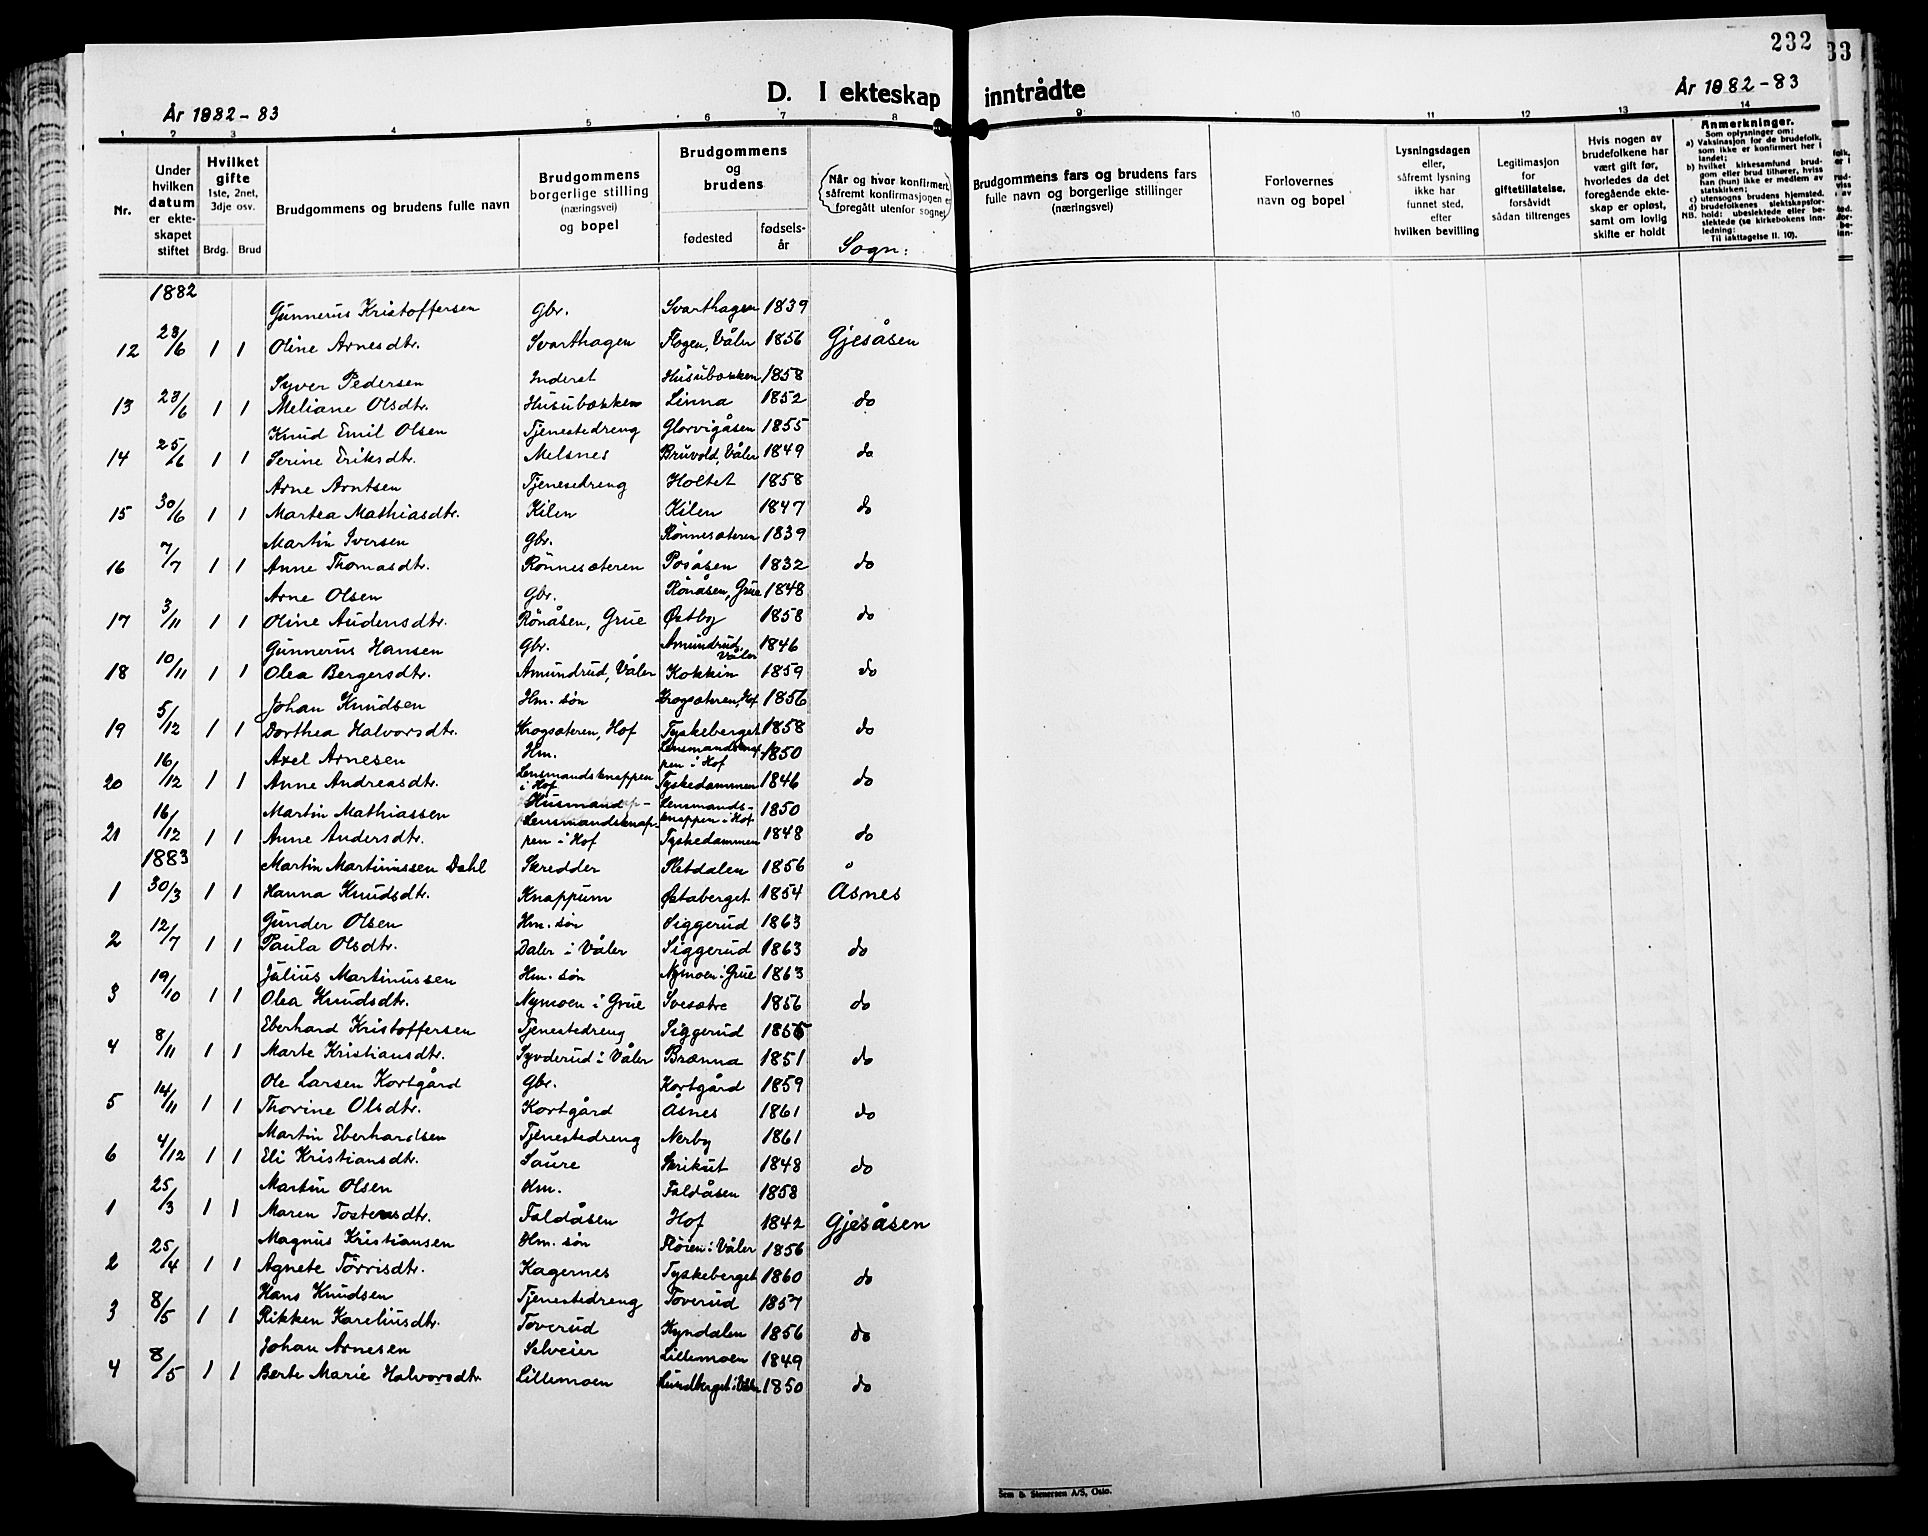 232
33
D. I ekteskap inntrådte
År 1882-83
År 1882-83
1 2 3 4 5 6 7 8 9 10 11 12 13 14
Nr.
Under hvilken datum er ekteskapet stiftet
Hvilket gifte
1ste, 2net, 3dje osv.
Brdg. Brud
Brudgommens og brudens fulle navn
Brudgommens borgerlige stilling (næringsvei) og bopel
Brudgommens og brudens
fødested
fødselsår
(Når og hvor konfirmert, såfremt konfirmasjonen er foregått utenfor sognet)
Sogn:
Brudgommens fars og brudens fars fulle navn og borgerlige stillinger (næringsvei)
Forlovernes navn og bopel
Lysningsdagen eller, såfremt lysning ikke har funnet sted, efter hvilken bevilling
Legitimasjon for giftetillatelse, forsåvidt sådan tiltrenges
Hvis nogen av brudefolkene har vært gift før, hvorledes da det foregående ekteskap er opløst, samt om lovlig skifte er holdt
Anmerkninger.
Som oplysninger om:
a) Vaksinasjon for de brudefolk, som ikke er konfirmert her i landet;
b) hvilket kirkesamfund brudgom eller brud tilhører, hviss han (hun) ikke er medlem av statskirken;
c) utensogns brudens hjemsted.
d) brudefolkenes slektskapsforhold: ubeslektede eller beslektede (se kirkebokens innledning:
NB. Til iakttagelse II. 10).
1882
Gunnerus Kristoffersen Gbr. Svarthagen 1839
12 23/6 1 1 Oline Arnesdtr. Svarthagen Flogen, Våler 1856 Gjesåsen
Syver Pedersen Inderst Husubakken 1858
13 23/6 1 1 Meliane Olsdtr. Husubakken Linna 1852 do
Knud Emil Olsen Tjenestedreng Glorvigåsen 1855
14 25/6 1 1 Serine Eriksdtr. Melsnes Bruvold, Våler 1849 do
Arne Arntsen Tjenesedreng Holtet 1858
15 30/6 1 1 Martea Mathiasdtr. Kilen Kilen 1847 do
Martin Iversen Gbr. Rönnesæteren 1839
16 7/7 1 1 Anne Thomasdtr. Rönnesæteren Posåsen 1832 do
Arne Olsen Gbr. Rönåsen, Grue 1848
17 3/11 1 1 Oline Audensdtr. Rönåsen, Grue Østby 1858 do
Gunnerus Hansen Gbr. Amundrud, Våler 1846
18 10/11 1 1 Olea Bergersdtr. Amundrud, Våler Kokkin 1859 do
Johan Knudsen Hm. søn Krogsæteren, Hof 1856
19 5/12 1 1 Dorthea Halvorsdtr. Krogsæteren, Hof Tyskeberget 1858 do
Axel Arnesen Hm. Lensmandsknappen i Hof 1850
20 16/12 1 1 Anne Andreasdtr. Lensmandsknappen i Hof Tyskedammen 1846 do
Martin Mathiassen Husmand Lensmandsknappen i Hof 1850
21 16/12 1 1 Anne Andersdtr. Lensmandsknappen i Hof Tyskedammen 1848 do
1883
Martin Martinussen Dahl Skredder Pletdalen 1856
1 30/3 1 1 Hanna Knudsdtr. Knappum Østaberget 1854 Åsnes
Gunder Olsen Hm. søn Siggerud 1863
2 12/7 1 1 Paula Olsdtr. Daler i Våler Siggerud 1863 do
Julius Martinussen Hm. søn Nymoen i Grue 1863
3 19/10 1 1 Olea Knudsdtr. Nymoen i Grue Svesætre 1856 do
Eberhard Kristoffersen Tjenestedreng Siggerud 1855
4 8/11 1 1 Marte Kristiansdtr. Syvderud i Våler Brænna 1851 do
Ole Larsen Kortgård Gbr. Kortgård 1859
5 14/11 1 1 Thorine Olsdtr. Kortgård Åsnes 1861 do
Martin Eberhardsen Tjenestedreng Nerby 1861
6 4/12 1 1 Eli Kristiansdtr. Saure Skrikut 1848 do
Martin Olsen Hm. Faldåsen 1858
1 25/3 1 1 Maren Tostensdtr. Faldåsen Hof 1842 Gjesåsen
Magnus Kristiansen Hm. søn Fløien i Våler 1856
2 25/4 1 1 Agnete Törrisdtr. Kagernes Tyskeberget 1860 do
Hans Knudsen Tjenestedreng Toverud 1857
3 8/5 1 1 Rikken Kareliusdtr. Toverud Kyndalen 1856 do
Johan Arnesen Selveier Lillemoen 1849
4 8/5 1 1 Berte Marie Halvorsdtr. Lillemoen Lundberget i Våler 1850 do
Sem & Stenersen A/S, Oslo.